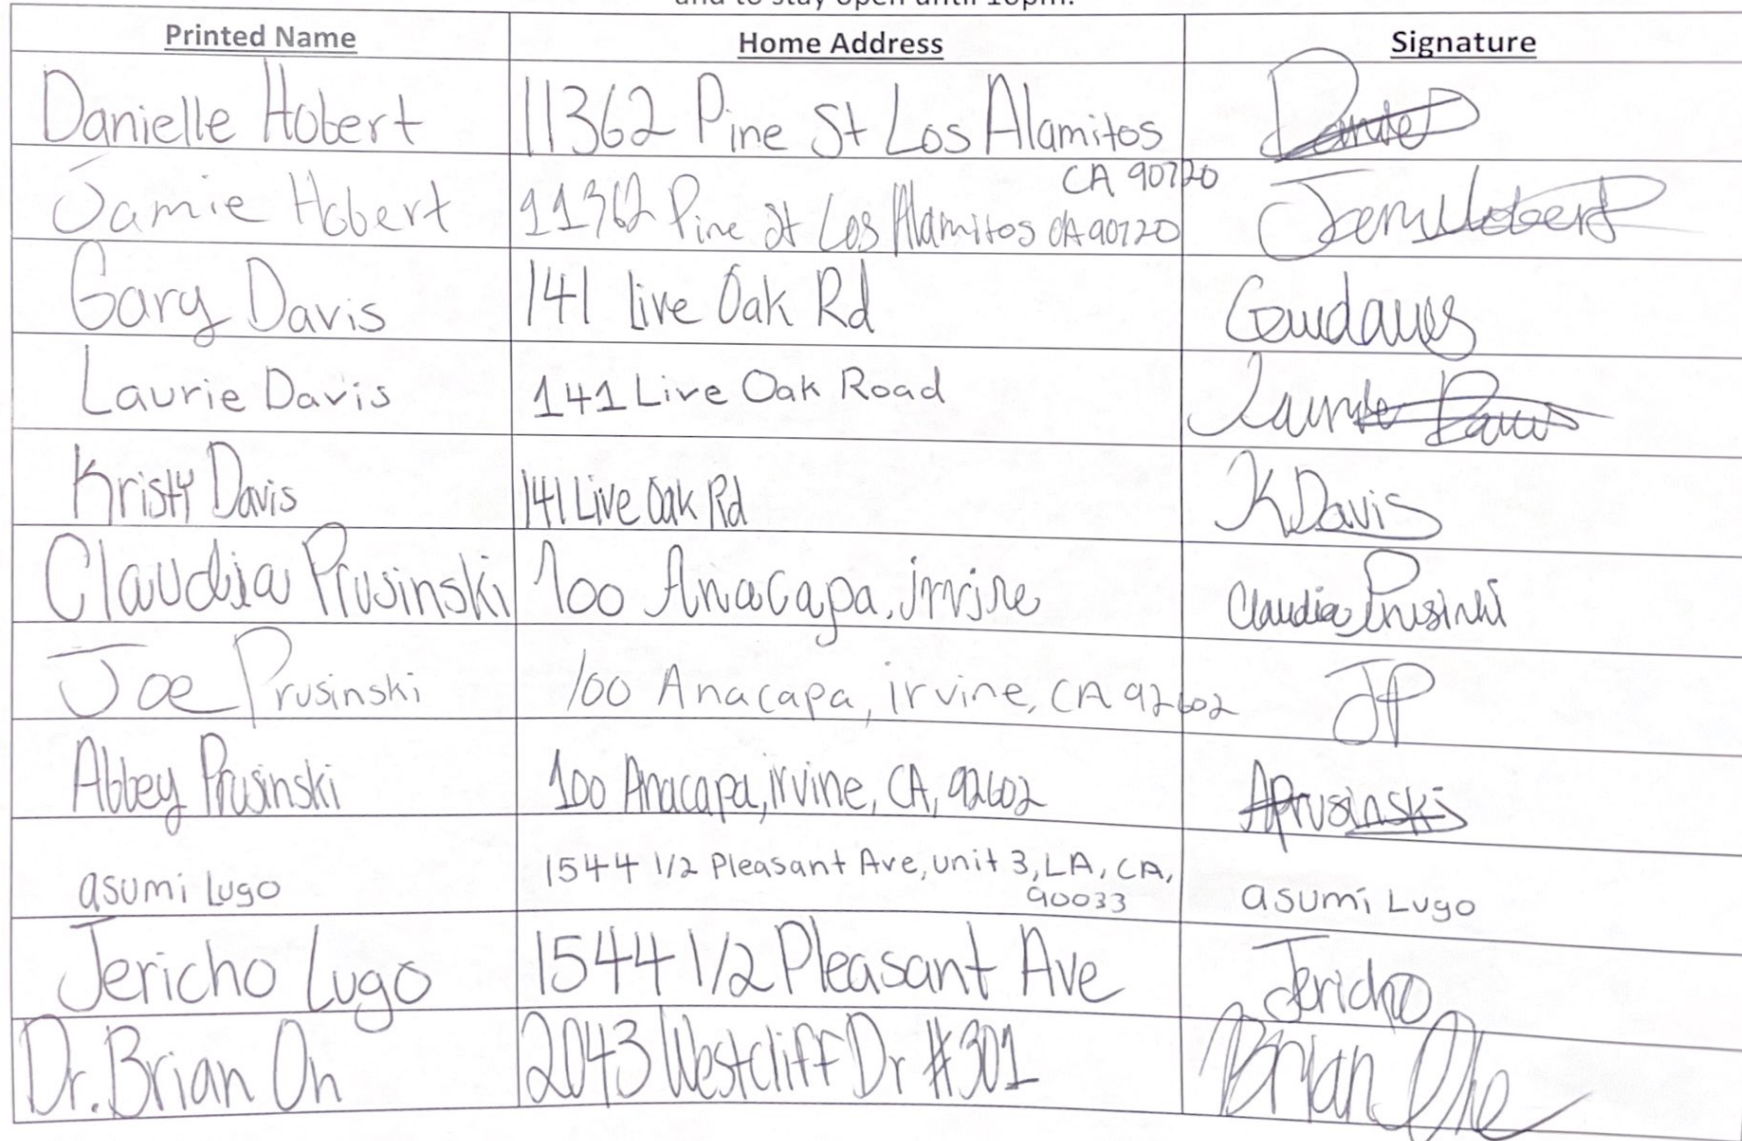 and to stay open until 10pm.
Printed Name Home Address Signature
Danielle Hobert 11362 Pine St Los Alamitos
CA 90720
Jamie Hobert 11362 Pine St Los Alamitos CA 90720
Gary Davis 141 Live Oak Rd
Laurie Davis 141 Live Oak Road
Kristy Davis 141 Live Oak Rd K Davis
Claudia Prusinski 100 Anacapa, irvine Claudia Prusinski
Joe Prusinski 100 Anacapa, irvine, CA 92602 JP
Abbey Prusinski 100 Anacapa, irvine, CA, 92602 APrusinski
asumi Lugo 1544 1/2 Pleasant Ave, unit 3, LA, CA, asumi Lugo
90033
Jericho Lugo 1544 1/2 Pleasant Ave Jericho
Dr. Brian On 2043 Westcliff Dr #301 Brian